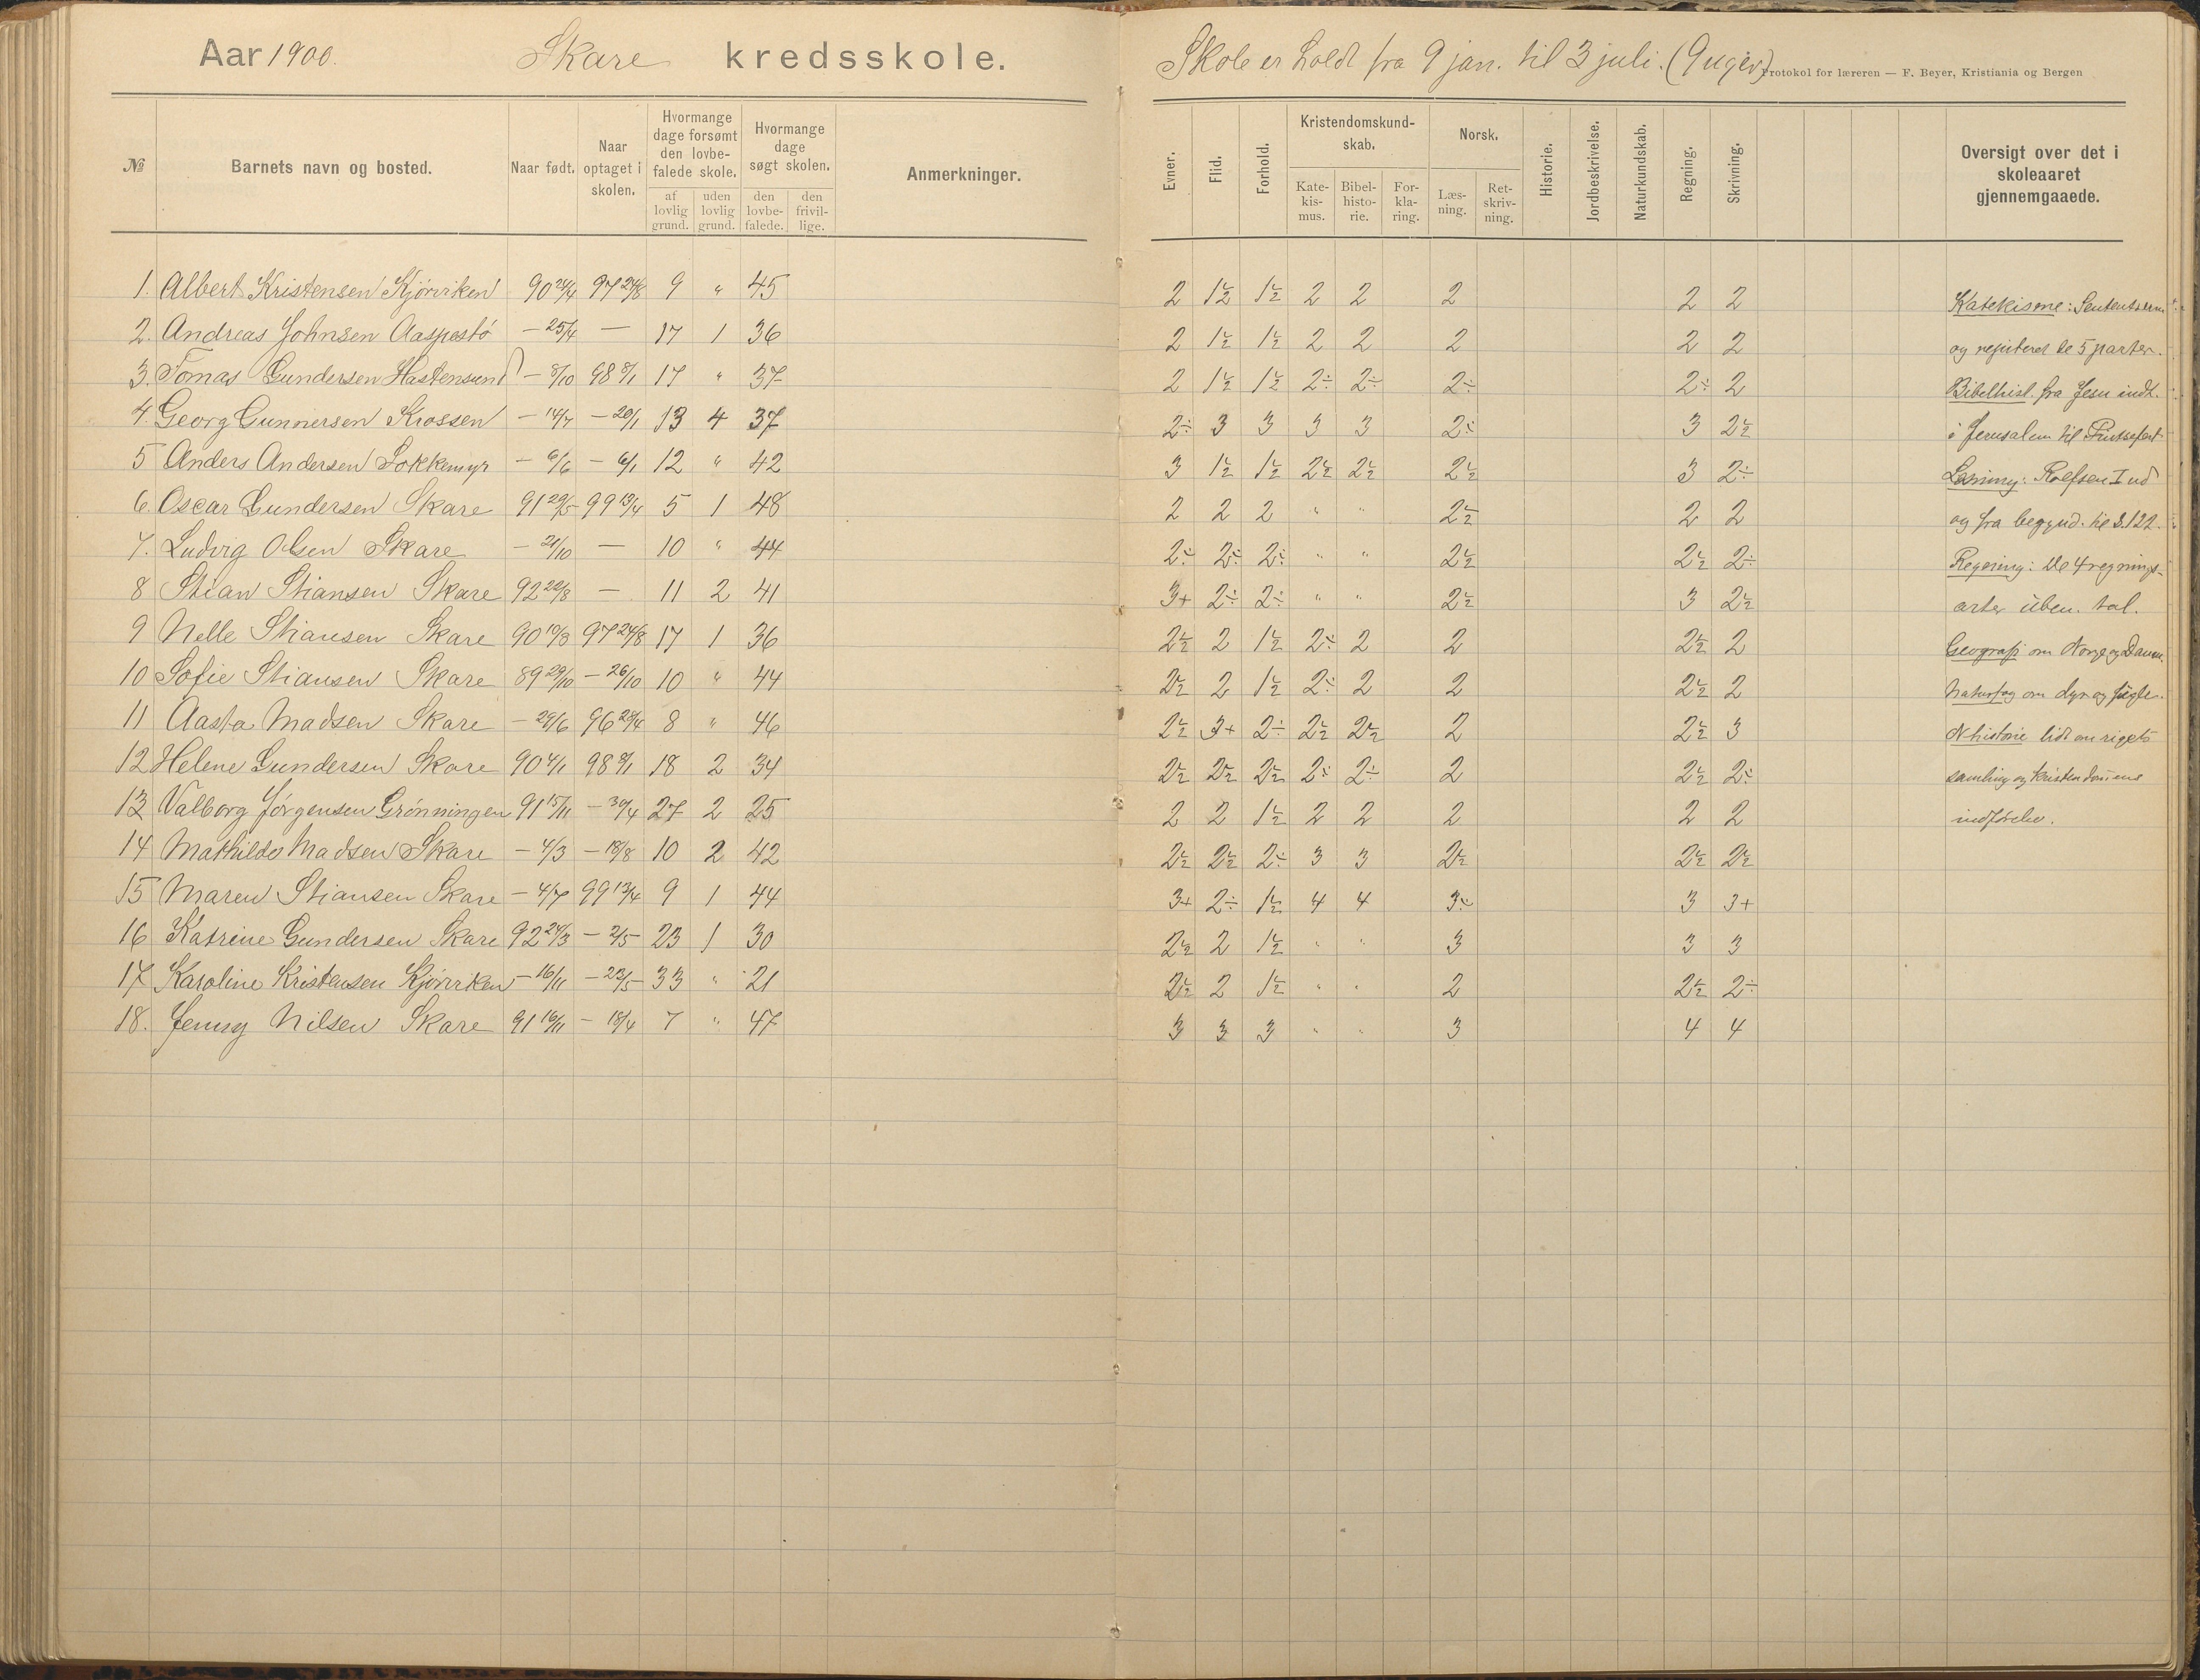 Aar 1900. Skare kredsskole. Skole er holdt fra 9 jan. til 3 juli. (9 uger)
Protokol for læreren — F. Beyer, Kristiania og Bergen
№ Barnets navn og bosted. Naar født. Naar optaget i skolen. Hvormange dage forsømt den lovbefalede skole. af lovlig grund. uden lovlig grund. Hvormange dage søgt skolen. den lovbefalede. den frivillige. Anmerkninger.
Evner. Flid. Forhold. Kristendomskundskab. Katekismus. Bibelhistorie. Forklaring. Norsk. Læsning. Retskrivning. Historie. Jordbeskrivelse. Naturkundskab. Regning. Skrivning. Oversigt over det i skoleaaret gjennemgaaede.
1. Albert Kristensen Kjørviken 90 24/4 97 24/8 9 " 45 2 1½ 1½ 2 2 2 2 2 Katekisme:
2. Andreas Johnsen Aaspestø – 25/4 — 17 1 36 2 1½ 1½ 2 2 2 2 2 og repeteret de 5 parter.
3. Tomas Gundersen Hastensund – 8/10 98 8/1 17 " 37 2 1½ 1½ 2÷ 2÷ 2÷ 2÷ 2 Bibelhist. fra Jesu indt.
4. Georg Gunnersen Krossen – 14/7 – 20/1 13 4 37 2÷ 3 3 3 3 2÷ 3 2½ i Jerusalem til
5 Anders Andersen Lokkemyr – 6/6 – 6/1 12 " 42 3 1½ 1½ 2½ 2½ 2½ 3 2÷ Læsning: Rolfsen I ud
6. Oscar Gundersen Skare 91 29/5 99 13/4 5 1 48 2 2 2 " " 2½ 2 2 og fra begynd. til s. 122.
7. Ludvig Olsen Skare – 21/10 — 10 " 44 2÷ 2÷ 2÷ " " 2½ 2½ 2÷ Regning: De 4 regnings-
8 Stian Stiansen Skare 92 22/8 — 11 2 41 3+ 2÷ 2÷ " " 2½ 3 2½ arter uben. tal.
9 Nelle Stiansen Skare 90 10/3 97 24/8 17 1 36 2½ 2 1½ 2÷ 2 2 2½ 2 Geografi om Norge og Danm.
10 Sofie Stiansen Skare 89 29/10 – 26/10 10 " 44 2½ 2 1½ 2÷ 2 2 2½ 2 Naturfag om dyr og fugle.
11 Aasta Madsen Skare – 29/6 96 28/4 8 " 46 2½ 3+ 2÷ 2½ 2½ 2 2½ 3 N-historie lidt om rigets
12 Helene Gundersen Skare 90 4/1 98 8/1 18 2 34 2½ 2½ 2½ 2÷ 2÷ 2 2½ 2÷ samling og kristendommens
13 Valborg Jørgensen Grønningen 91 15/11 – 30/4 27 2 25 2 2 1½ 2 2 2 2 2 indførelse.
14 Mathilde Madsen Skare – 4/3 – 18/8 10 2 42 2½ 2½ 2÷ 3 3 2½ 2½ 2½
15 Maren Stiansen Skare – 4/7 99 13/4 9 1 44 3+ 2÷ 1½ 4 4 3÷ 3 3+
16 Katrine Gundersen Skare 92 24/3 – 2/5 23 1 30 2½ 2 1½ " " 3 3 3
17 Karoline Kristensen Kjørviken – 16/11 – 23/5 33 " 21 2½ 2 1½ " " 2 2½ 2÷
18. Jenny Nilsen Skare 91 16/11 – 18/4 7 " 47 3 3 3 " " 3 4 4